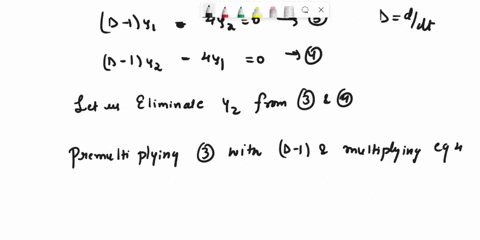 (D-1)y₁ - 4y₂ = 0 → ③ D = d/dt
(D-1)y₂ - 4y₁ = 0 → ④
Let us Eliminate y₂ from ③ & ④
Premultiplying ③ with (D-1) & multiplying eq 4